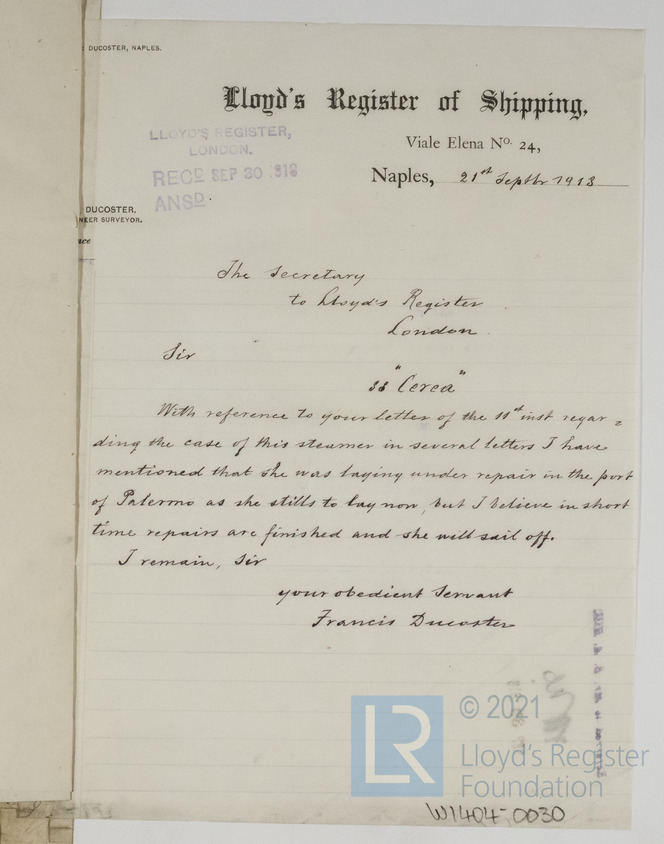 DUCOSTER, NAPLES.
Lloyd's Register of Shipping,
Viale Elena No. 24,
LLOYD'S REGISTER,
LONDON.
RECD SEP 30 1913
ANSD.
Naples, 21st Septbr 1913
DUCOSTER,
NEER SURVEYOR.
nce
The Secretary
to Lloyd's Register
London
Sir
ss "Cerea"
With reference to your letter of the 11st inst regar=
ding the case of this steamer in several letters I have
mentioned that she was laying under repair in the port
of Palermo as she stills to lay now, but I believe in short
time repairs are finished and she will sail off.
I remain, Sir
your obedient Servant
Francis Ducoster
LR
© 2021
Lloyd's Register
Foundation
W1404-0030